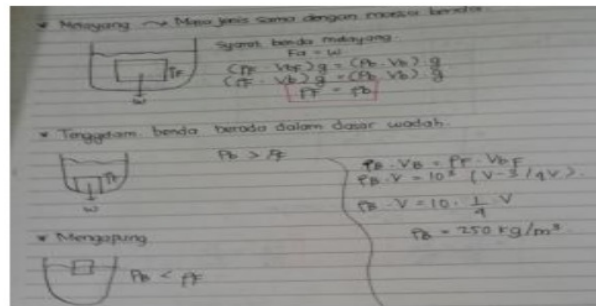 * Melayang → Masa jenis sama dengan massa benda.
Syarat benda melayang.
Fa = w
(ρF . Vb) g = (ρb . Vb) . g
(ρF . Vb) g = (ρb . Vb) . g
ρF = ρb
ρF
w
* Tenggelam. benda berada dalam dasar wadah.
ρb > ρF
ρF
w
* Mengapung
ρb < ρF
ρB . VB = ρF . VbF
ρB . V = 10³ (V - 3/4V).
ρB . V = 10 . 1/4 V
ρB = 250 kg/m³